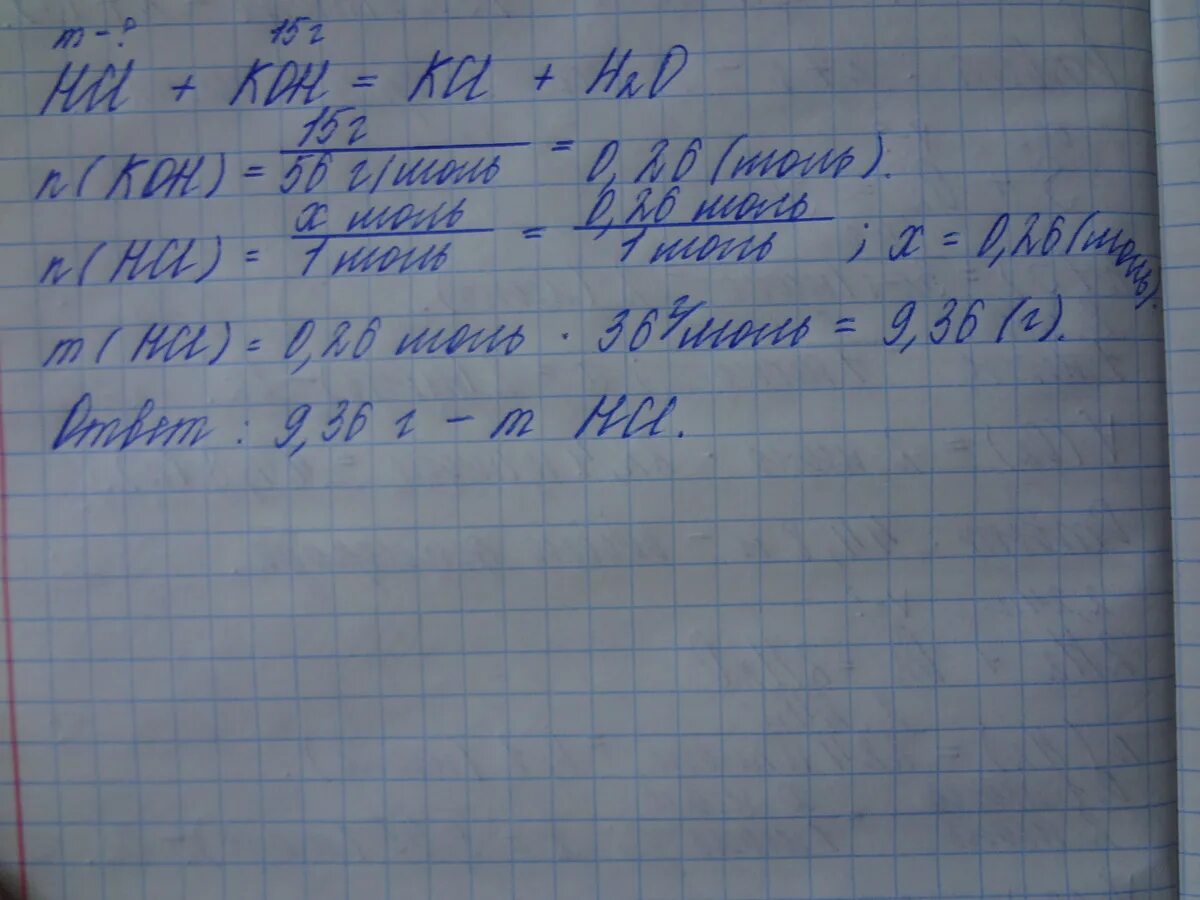 m - ? 15г
HCl + KOH = KCl + H₂O
n(KOH) = 15г / 56 г/моль = 0,26 (моль).
n(HCl) = x моль / 1 моль = 0,26 моль / 1 моль ; x = 0,26 (моль).
m(HCl) = 0,26 моль · 36 г/моль = 9,36 (г).
Ответ : 9,36 г - m HCl.